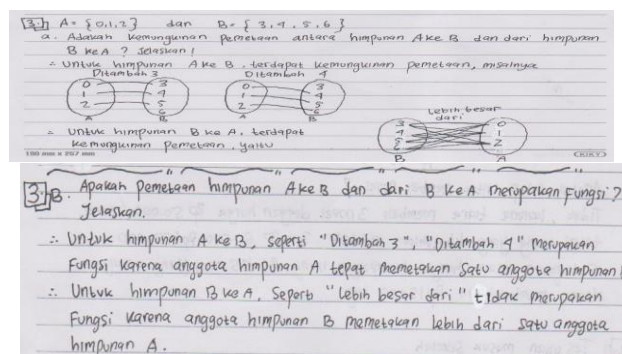 3. A = {0,1,2} dan B = {3,4,5,6}
a. Adakah kemungkinan pemetaan antara himpunan A ke B dan dari himpunan
B ke A ? Jelaskan!
∴ Untuk himpunan A ke B, terdapat kemungkinan pemetaan, misalnya
Ditambah 3 Ditambah 4
0 3 0 3
1 4 1 4
2 5 2 5
6 6
A B A B
= Untuk himpunan B ke A, terdapat
kemungkinan pemetaan, yaitu
Lebih besar
dari
3 0
4 1
5 2
6
B A
190 mm x 257 mm
(KIKY)
3. B. Apakah Pemetaan himpunan A ke B dan dari B ke A merupakan Fungsi?
Jelaskan.
∴ Untuk himpunan A ke B, seperti "Ditambah 3", "Ditambah 4" merupakan
Fungsi karena anggota himpunan A tepat memetakan satu anggota himpunan
∴ Untuk himpunan B ke A, seperti "lebih besar dari" tidak merupakan
Fungsi karena anggota himpunan B memetakan lebih dari satu anggota
himpunan A.